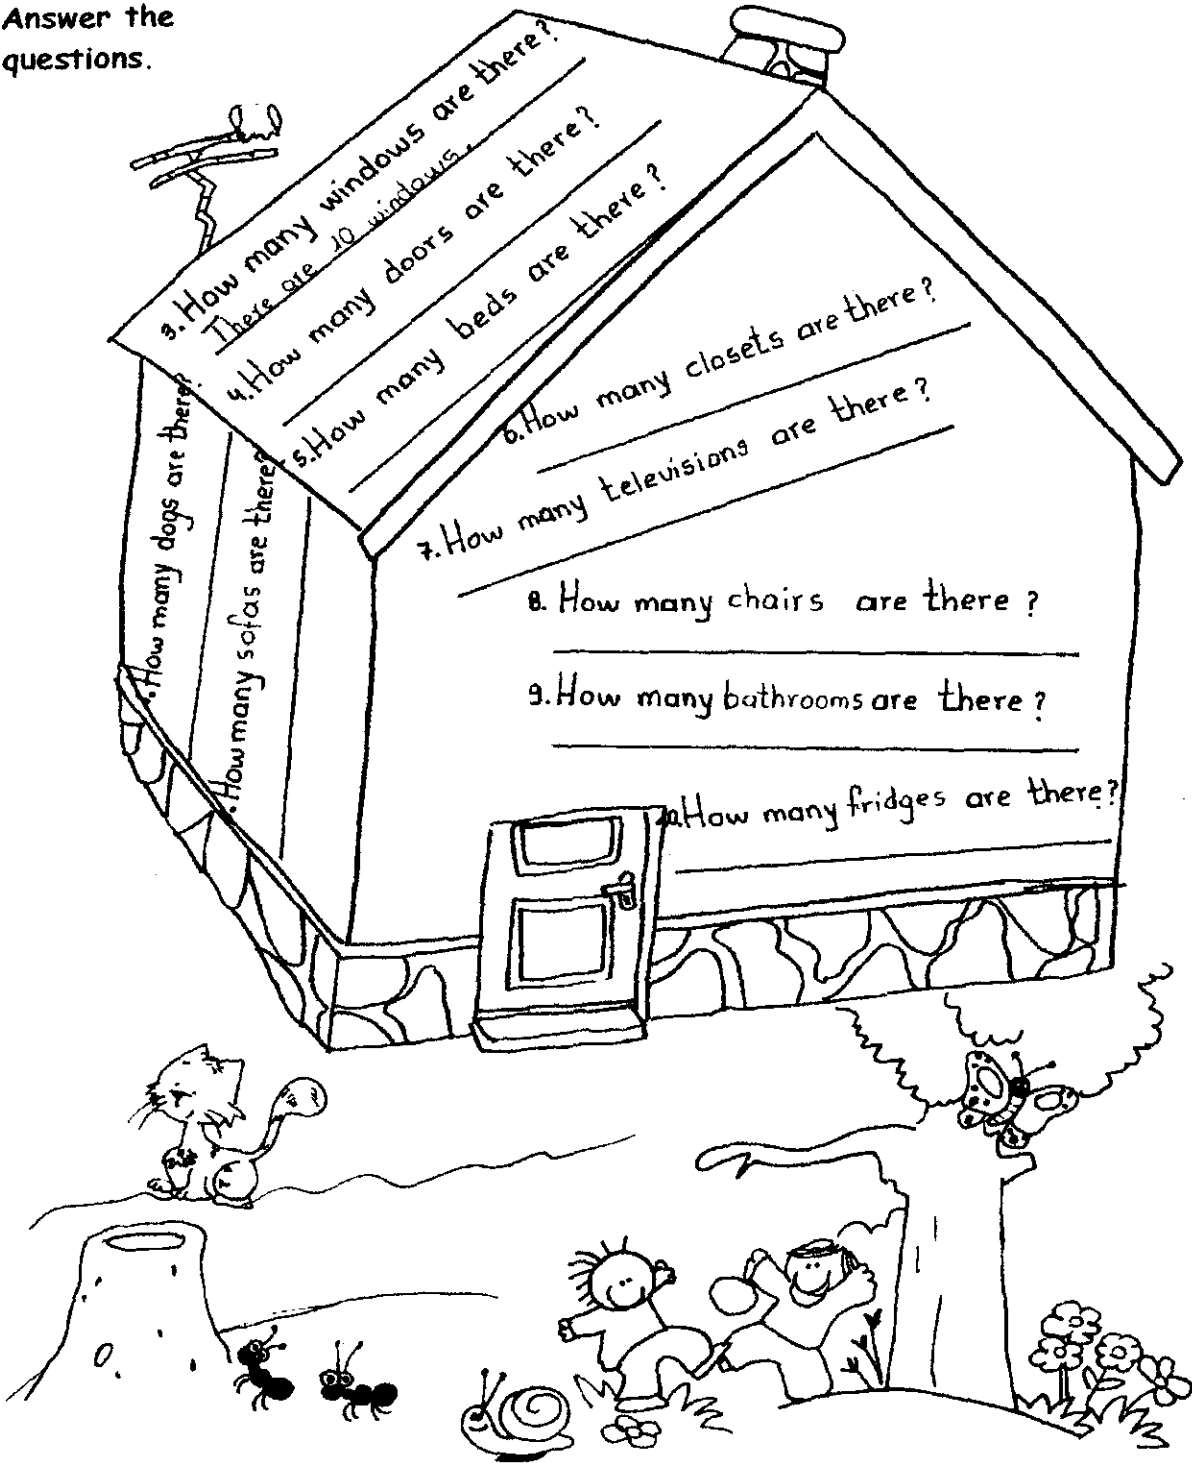 Answer the
questions.
. How many dogs are there?
. How many sofas are there?
3. How many windows are there?
There are 10 windows.
4. How many doors are there?
5. How many beds are there?
6. How many closets are there?
7. How many televisions are there?
8. How many chairs are there ?
9. How many bathrooms are there ?
10. How many fridges are there?